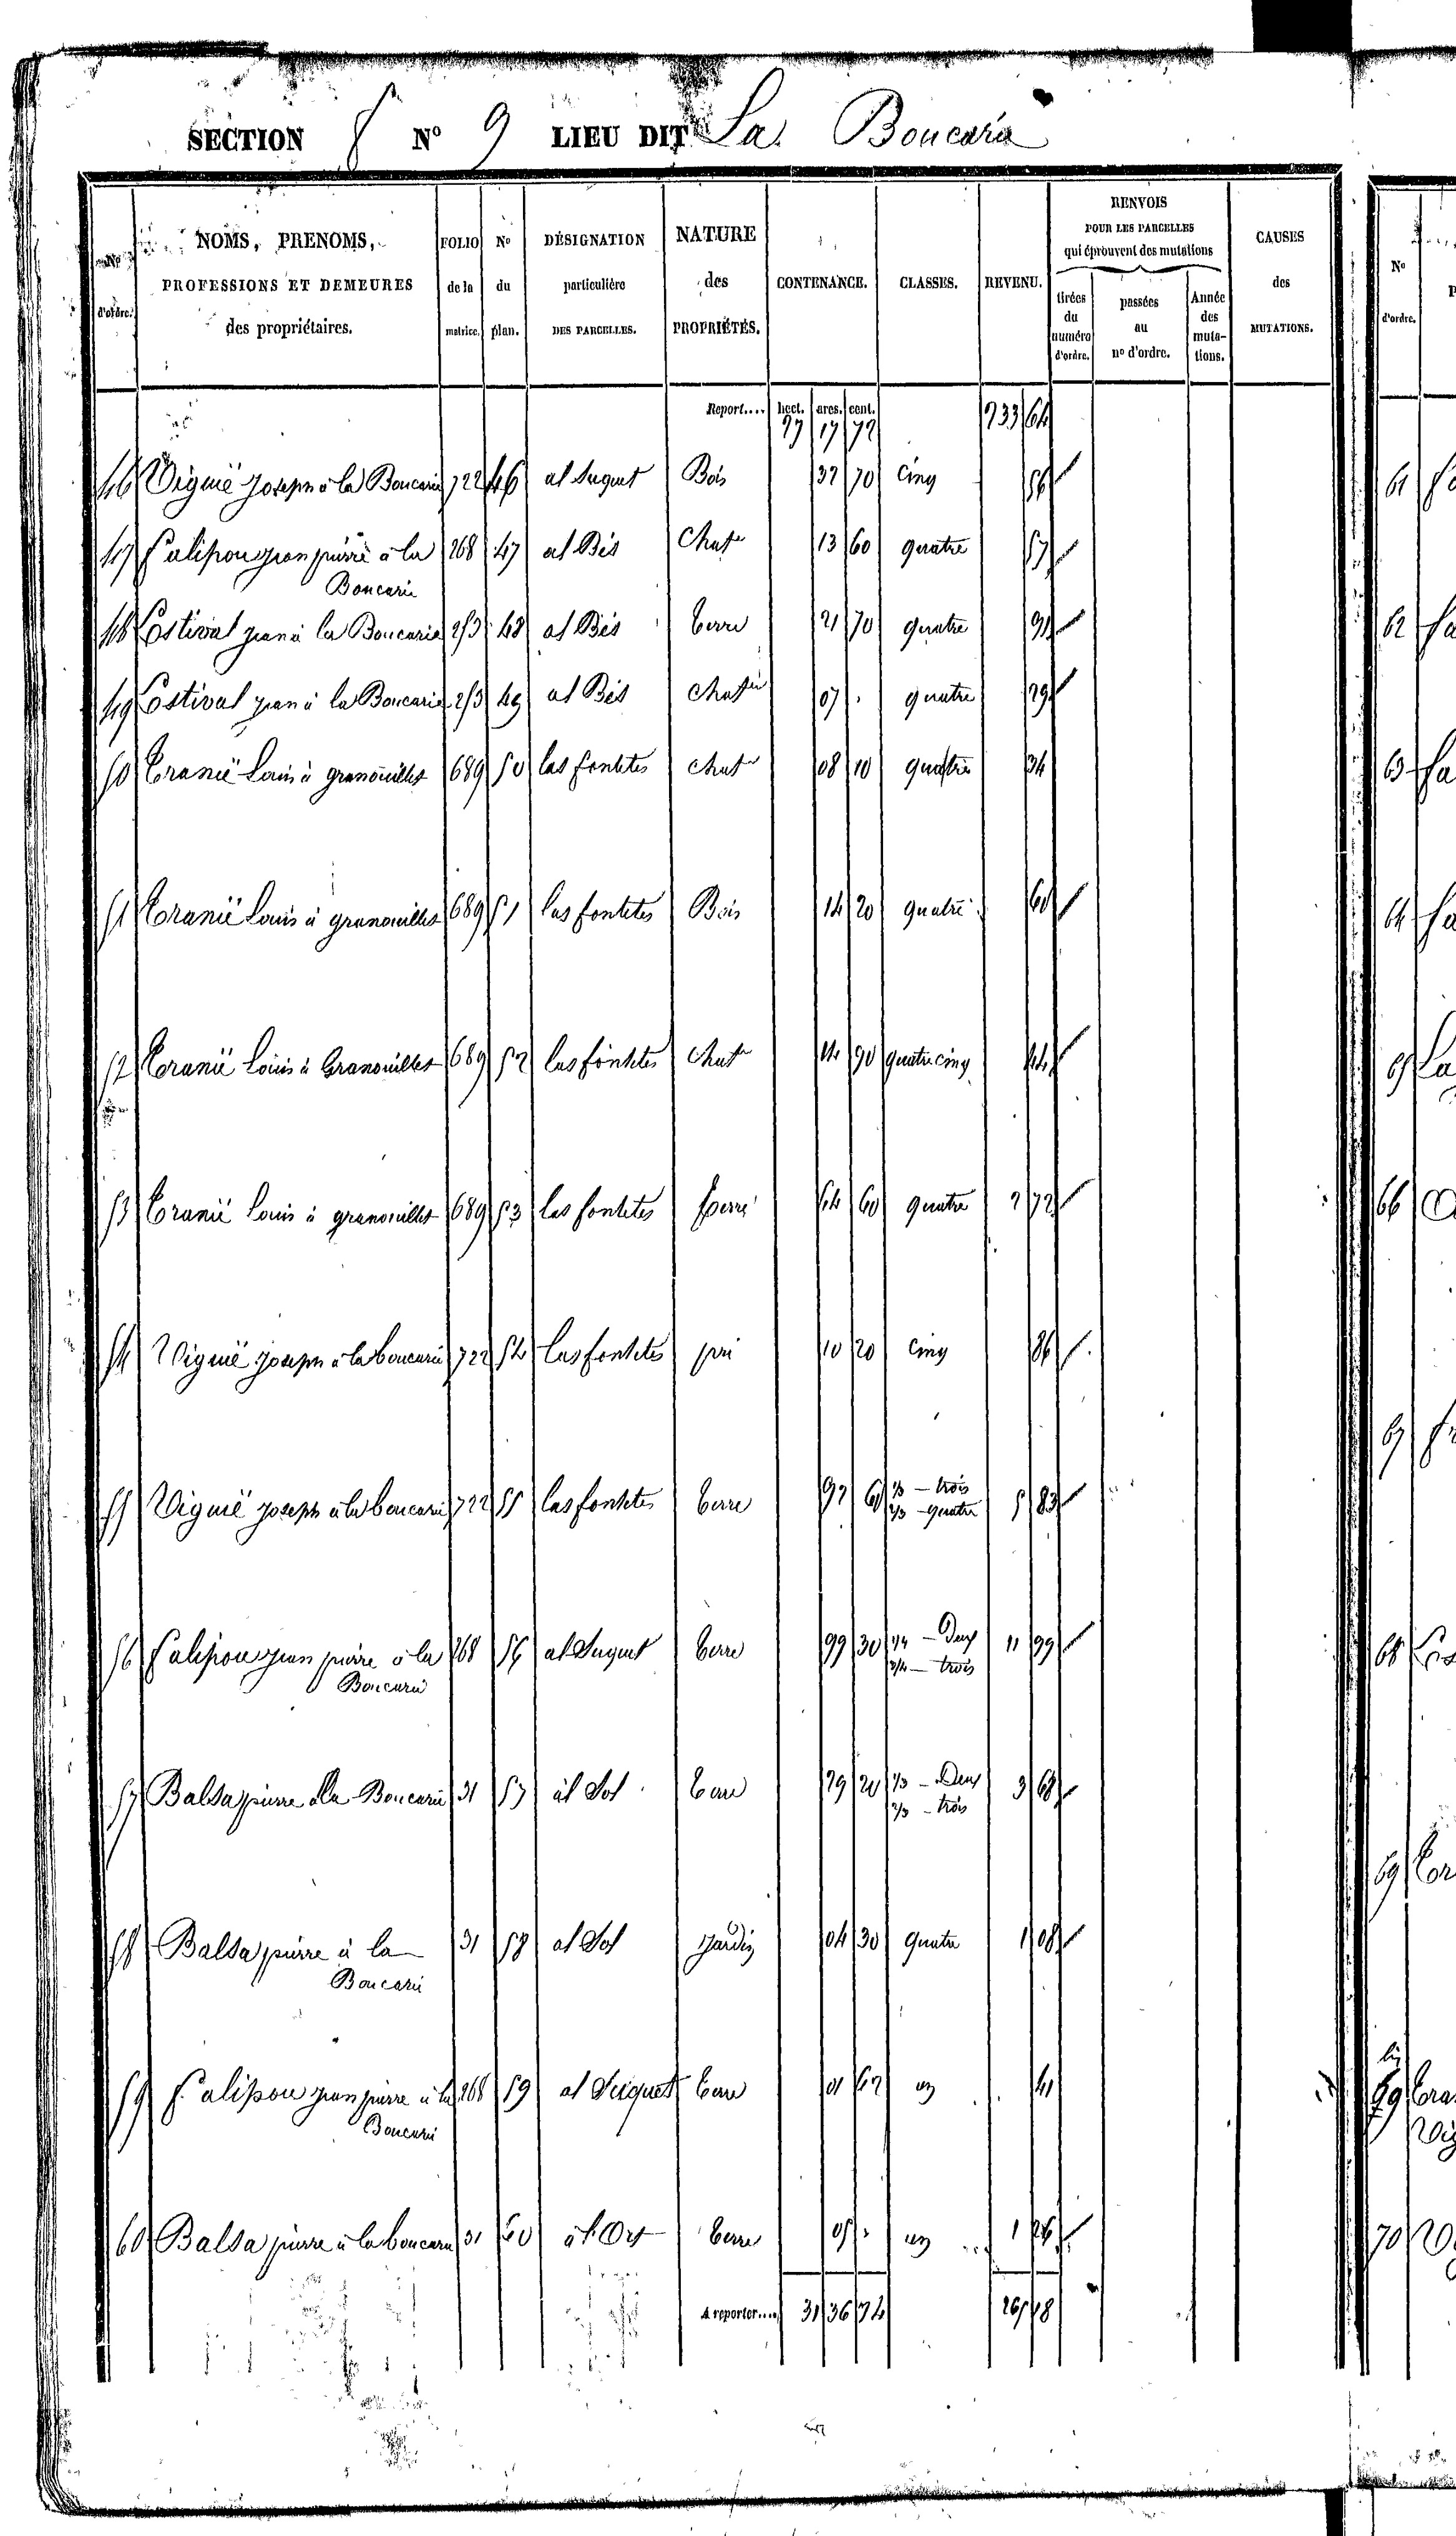 SECTION N° 9 LIEU DIT La Boucaria
N° d'ordre. NOMS, PRENOMS, PROFESSIONS ET DEMEURES des propriétaires. FOLIO de la matrice. N° du plan. DÉSIGNATION particulière DES PARCELLES. NATURE des PROPRIÉTÉS. CONTENANCE. CLASSES. REVENU. RENVOIS POUR LES PARCELLES qui éprouvent des mutations tirées du numéro d'ordre. passées au n° d'ordre. Année des mutations. CAUSES des MUTATIONS.
Report.... hect. ares. cent.
27 17 72 233 64
46 Viguië Joseph à la Boucarie 722 46 al Suquet Bois 32 70 Cinq 56
47 Falipou jean pierre à la 268 47 al Bés Chatr 13 60 quatre 57
Boucarie
48 Costival jean à la Boucarie 253 48 al Bés terre 21 70 quatre 91
49 Costival jean à la Boucarie 253 49 al Bés Chatr 07 . quatre 29
50 Tranië Louis à granouilles 689 50 las fontetes chatr 08 10 quatre 34
51 Tranië Louis à granouilles 689 51 las fontetes Bois 14 20 quatre 60
52 Tranië Louis à Granouilles 689 52 las fontetes Chatr 14 90 quatre cinq 44
53 Tranië Louis à granouilles 689 53 las fontetes terre 64 60 quatre 2 72
54 Viguië Joseph à la boucarie 722 54 las fontetes pré 10 20 Cinq 86
55 Viguië Joseph à la boucarie 722 55 las fontetes terre 92 60 1/3 - trois 5 83
2/3 - quatre
56 Falipou jean pierre à la 268 56 al Suquet terre 99 30 1/4 - Deux 11 99
3/4 - trois
Boucarie
57 Balsa pierre à la Boucarie 31 57 al Sol terre 29 20 1/3 - Deux 3 68
2/3 - trois
58 Balsa pierre à la 31 58 al Sol Jardin 04 30 quatre 1 08
Boucarie
59 Falipou jean pierre à la 268 59 al Suquet terre 01 62 un 41
Boucarie
60 Balsa pierre à la boucarie 31 60 à l'Ort terre 05 . un 1 26
A reporter.... 31 36 74 265 18
N° d'ordre.
61
62
63
64
65
66
67
68
69
69 bis
70